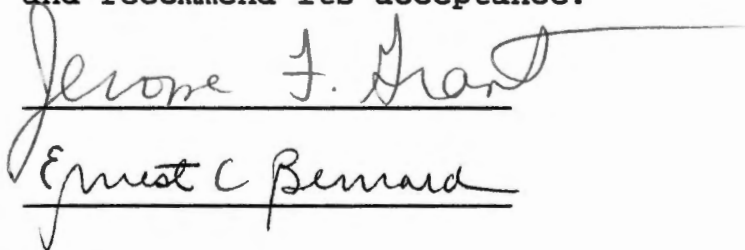 and recommend its acceptance:
Jerome F. Grant
Ernest C Bernard